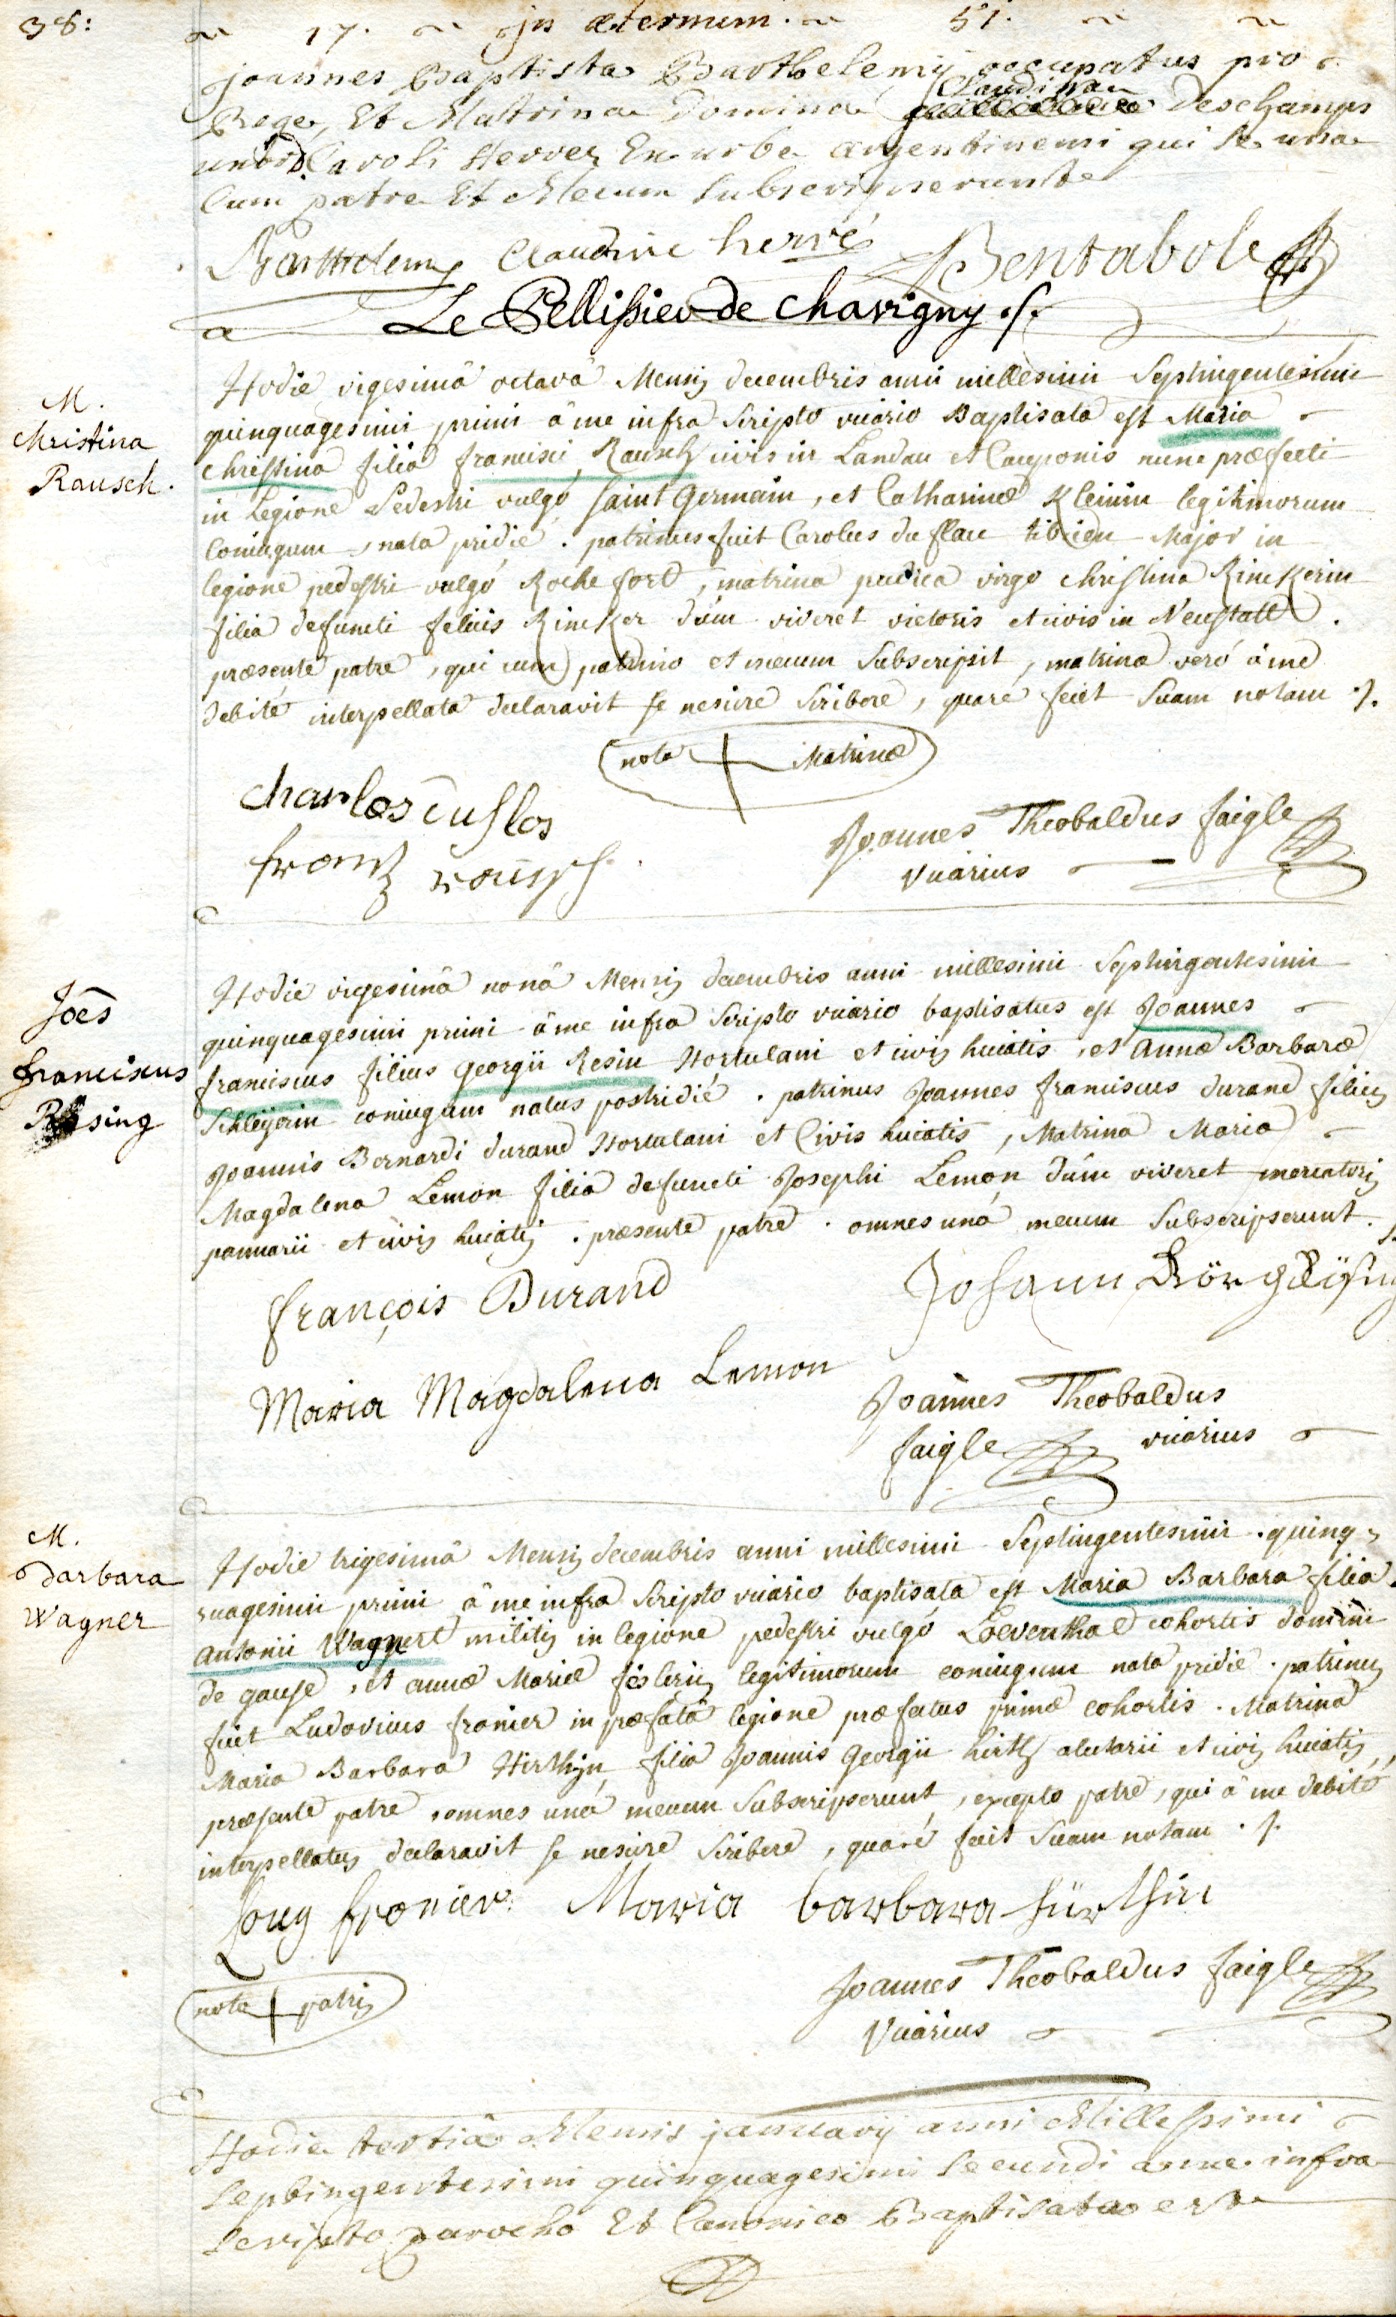 38:
17. jn æternum. 51.
joannes Baptista Barthelemÿ occupatus pro
Rege, Et Matrina Domina Claudina Deschamps
uxor D. Caroli Hervez Ex urbe argentinensi qui se una
Cum patre Et Mecum subscripserunt
Barthelemy Claudine hervé Bentabole
Le Pellissier de Chavigny ./.
M.
Christina
Rausch.
Hodie vigesimâ octavâ Mensis decembris anni millesimi Septingentesimi
quinquagesimi primi â me infra Scripto vicario Baptisata est Maria
Christina filia francisci Rausch civis in Landau et Cauponis nunc præfecti
in Legione Pedestri vulgó Saint Germain, et Catharinæ Kleinin legitimorum
Coniugum, nata pridie. patrinus fuit Carolus du flau tibicen Major in
legione pedestri vulgó Rochefort, matrina pudica virgo Christina Rinckerin
filia defuncti felicis Rincker dúm viveret victoris et civis in Neustatt.
præsente patre, qui cum patrino et mecum Subscripsit, matrina veró â me
debité interpellata declaravit se nescire Scribere, quaré fecit Suam notam ./.
nota + Matrinæ
charles duflos
frantz rausch
Joannes Theobaldus faigle
vicarius
Joês
franciscus
Rösing
Hodie vigesimâ nonâ Mensis decembris anni millesimi Septingentesimi
quinquagesimi primi â me infra Scripto vicario baptisatus est Joannes
franciscus filius Georgii Resin Hortulani et civis huiatis, et Annæ Barbaræ
Schleÿerin coniugum natus postridié. patrinus Joannes franciscus durand filius
Joannis Bernardi durand Hortulani et Civis huiatis, Matrina Maria
Magdalena Lemon filia defuncti Josephi Lemon dúm viveret mercatoris
pannarii et civis huiatis. præsente patre. omnes uná mecum Subscripserunt. ./.
françois Durand
Johann Görg Rösing
Maria Magdalena Lemon
Joannes Theobaldus
faigle vicarius
M.
Barbara
Wagner
Hodie trigesimâ Mensis decembris anni millesimi Septingentesimi quinq-
uagesimi primi â me infra Scripto vicario baptisata est Maria Barbara filia
Antonii Wagnert militis in legione pedestri vulgó Loeventhal cohortis domini
de gause, et annæ Mariæ feslerin legitimorum coniugum nata pridie. patrinus
fuit Ludovicus fronier in præfatâ legione præfectus primæ cohortis. Matrina
Maria Barbara Hirthin filia Joannis Georgii hirth alutarii et civis huiatis,
præsente patre, omnes uná mecum Subscripserunt, excepto patre, qui â me debité
interpellatus declaravit se nescire Scribere, quaré fecit Suam notam ./.
Louy fronier. Maria barbara hürthin
nota + patris
Joannes Theobaldus faigle
Vicarius
Hodie tertiâ Mensis januarÿ anni Millessimi
septingentesimi quinquagesimi secundi a me infra
scripto parocho Et Canonico Baptisatus est